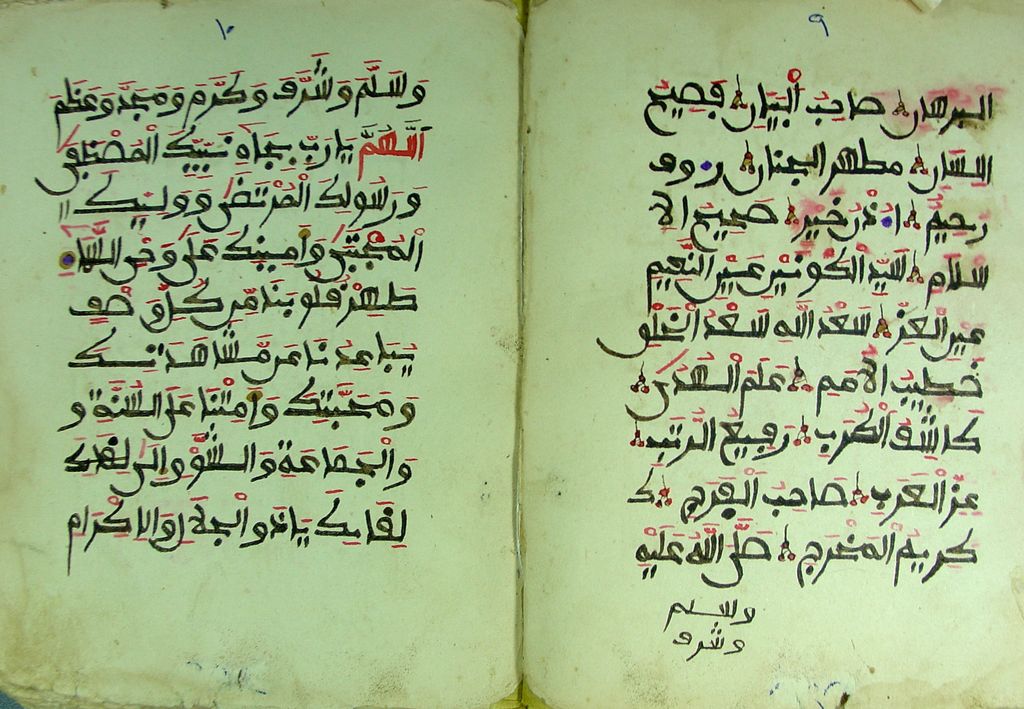 ٩
البرهان صاحب البيان فصيح
اللسان مطهر الجنان رءوف
رحيم اذن خير صحيح الا
سلام سيد الكونين عين النعيم
عين العز سعد الله سعد الخلق
خطيب الامم علم الهدى
كاشف الكرب رفيع الرتب
عز العرب صاحب الفرج ك
كريم المخرج صلى الله عليه
وسلم
وشرف
١٠
وسلم وشرف وكرم ومجد وعظم
اللهم يارب بجاه نبيك المصطفى
ورسولك المرتضى ووليك
المجتبى وامينك على وحي السماء
طهر قلوبنا من كل وصف
يباعدنا عن مشاهدتك
ومحبتك وامتنا على السنة و
والجماعة والشوق والى لقائك
لقائك ياذوالجلال والاكرام